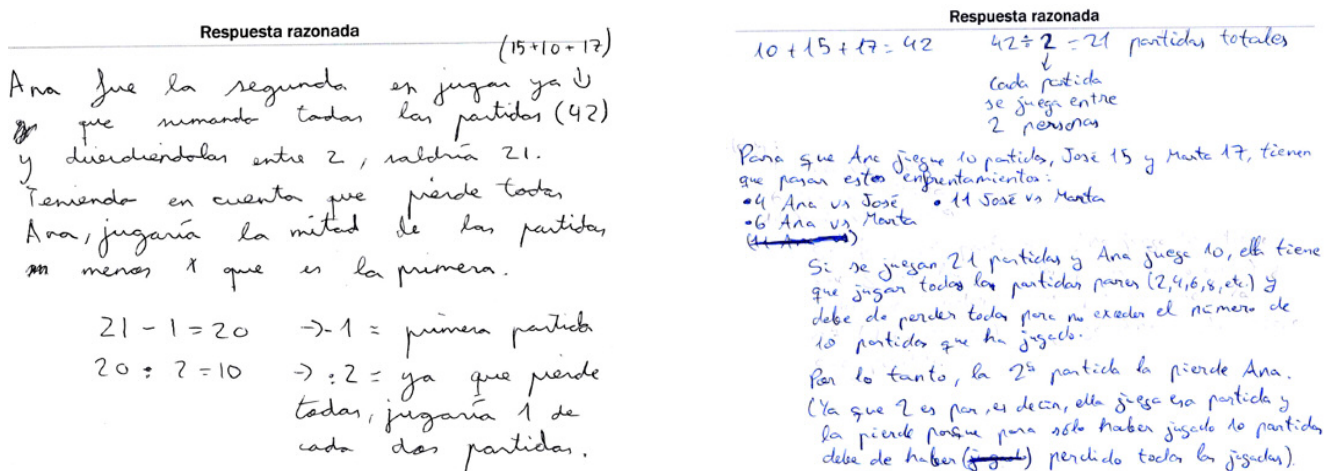 Respuesta razonada
(15+10+17)
Ana fue la segunda en jugar ya ↓
que sumando todas las partidas (42)
y diviendolas entre 2, saldría 21.
Teniendo en cuenta que pierde todas
Ana, jugaría la mitad de las partidas
menos 1 que es la primera.
21 - 1 = 20 → -1 = primera partida
20 : 2 = 10 → : 2 = ya que pierde
todas, jugaría 1 de
cada dos partidas.
Respuesta razonada
10 + 15 + 17 = 42 42 ÷ 2 = 21 partidas totales
↓
Cada partida
se juega entre
2 personas
Para que Ana juegue 10 partidas, José 15 y Marta 17, tienen
que pasar estos enfrentamientos:
• 4 Ana vs José • 11 José vs Marta
• 6 Ana vs Marta
Si se juegan 21 partidas y Ana juega 10, ella tiene
que jugar todas las partidas pares (2,4,6,8,etc.) y
debe de perder todas para no exceder el número de
10 partidas que ha jugado.
Por lo tanto, la 2ª partida la pierde Ana.
(Ya que 2 es par, es decir, ella juega esa partida y
la pierde porque para sólo haber jugado 10 partidas
debe de haber perdido todas las jugadas).